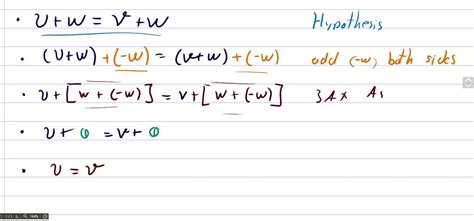 • U+w = v+w Hypothesis
• (U+w) +(-w) = (v+w) +(-w) add (-w) both sides
• U+[w+(-w)] = v+[w+(-w)] 3Ax As
• U+ 0 = v+ 0
• U = v